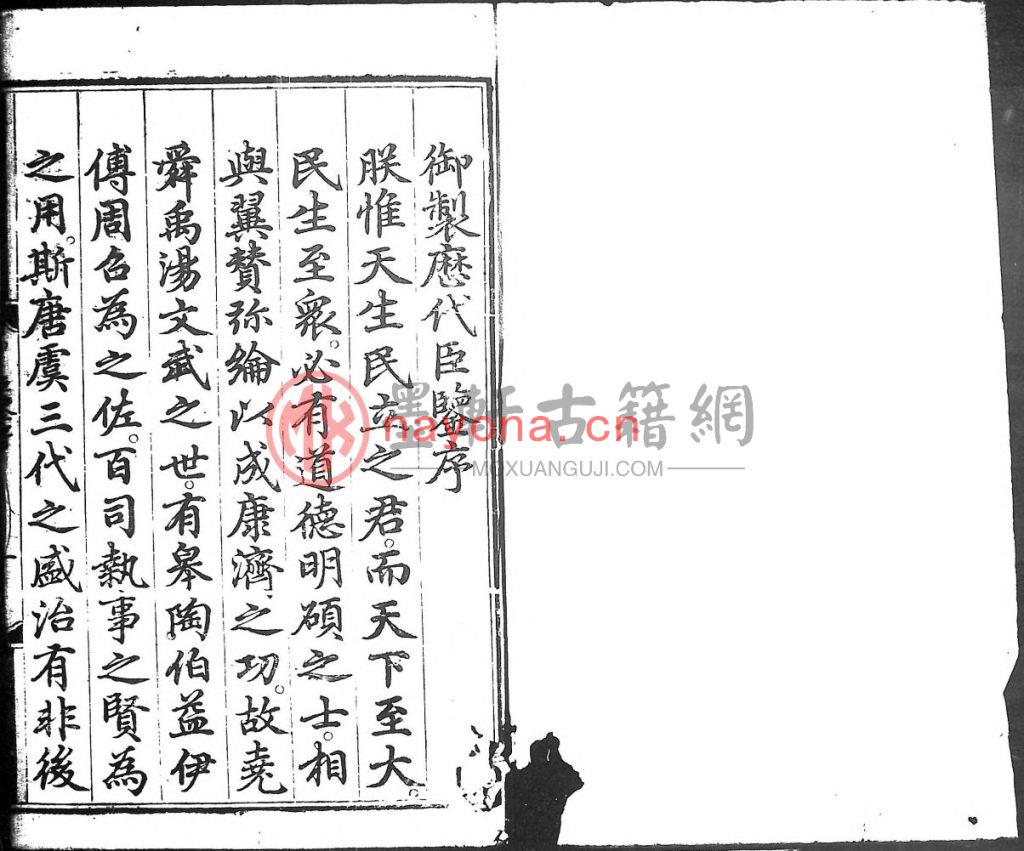 御製歷代臣鑒序
朕惟天生民立之君。而天下至大。
民生至衆。必有道德明碩之士。相
與翼贊弥綸以成康濟之功。故堯
舜禹湯文武之世。有皋陶伯益伊
傅周召為之佐。百司執事之賢為
之用。斯唐虞三代之盛治有非後
墨軒古籍網
nayona.cn
MOXUANGUJI.COM